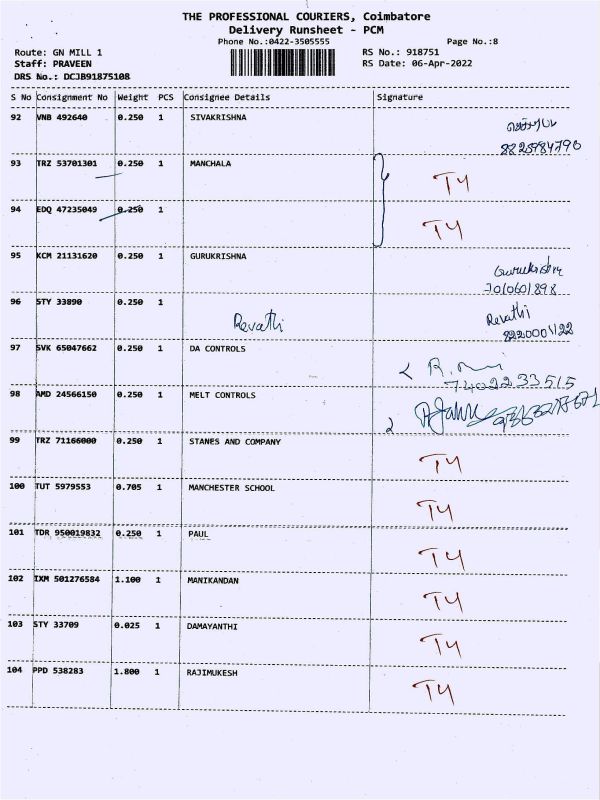 THE PROFESSIONAL COURIERS, Coimbatore
Delivery Runsheet - PCM
Phone No.:0422-3505555 Page No.:8
Route: GN MILL 1 RS No.: 918751
Staff: PRAVEEN RS Date: 06-Apr-2022
DRS No.: DCJB91875108
S No Consignment No Weight PCS Consignee Details Signature
92 VNB 492640 0.250 1 SIVAKRISHNA
93 TRZ 53701301 0.250 1 MANCHALA T4
94 EDQ 47235049 0.250 1 T4
95 KCM 21131620 0.250 1 GURUKRISHNA Gurukrishna
7010601898
96 STY 33890 0.250 1 Revathi Revathi
8220001122
97 SVK 65047662 0.250 1 DA CONTROLS
7402233515
98 AMD 24566150 0.250 1 MELT CONTROLS
99 TRZ 71166000 0.250 1 STANES AND COMPANY T4
100 TUT 5979553 0.705 1 MANCHESTER SCHOOL T4
101 TDR 950019832 0.250 1 PAUL T4
102 IXM 501276584 1.100 1 MANIKANDAN T4
103 STY 33709 0.025 1 DAMAYANTHI T4
104 PPD 538283 1.800 1 RAJIMUKESH T4